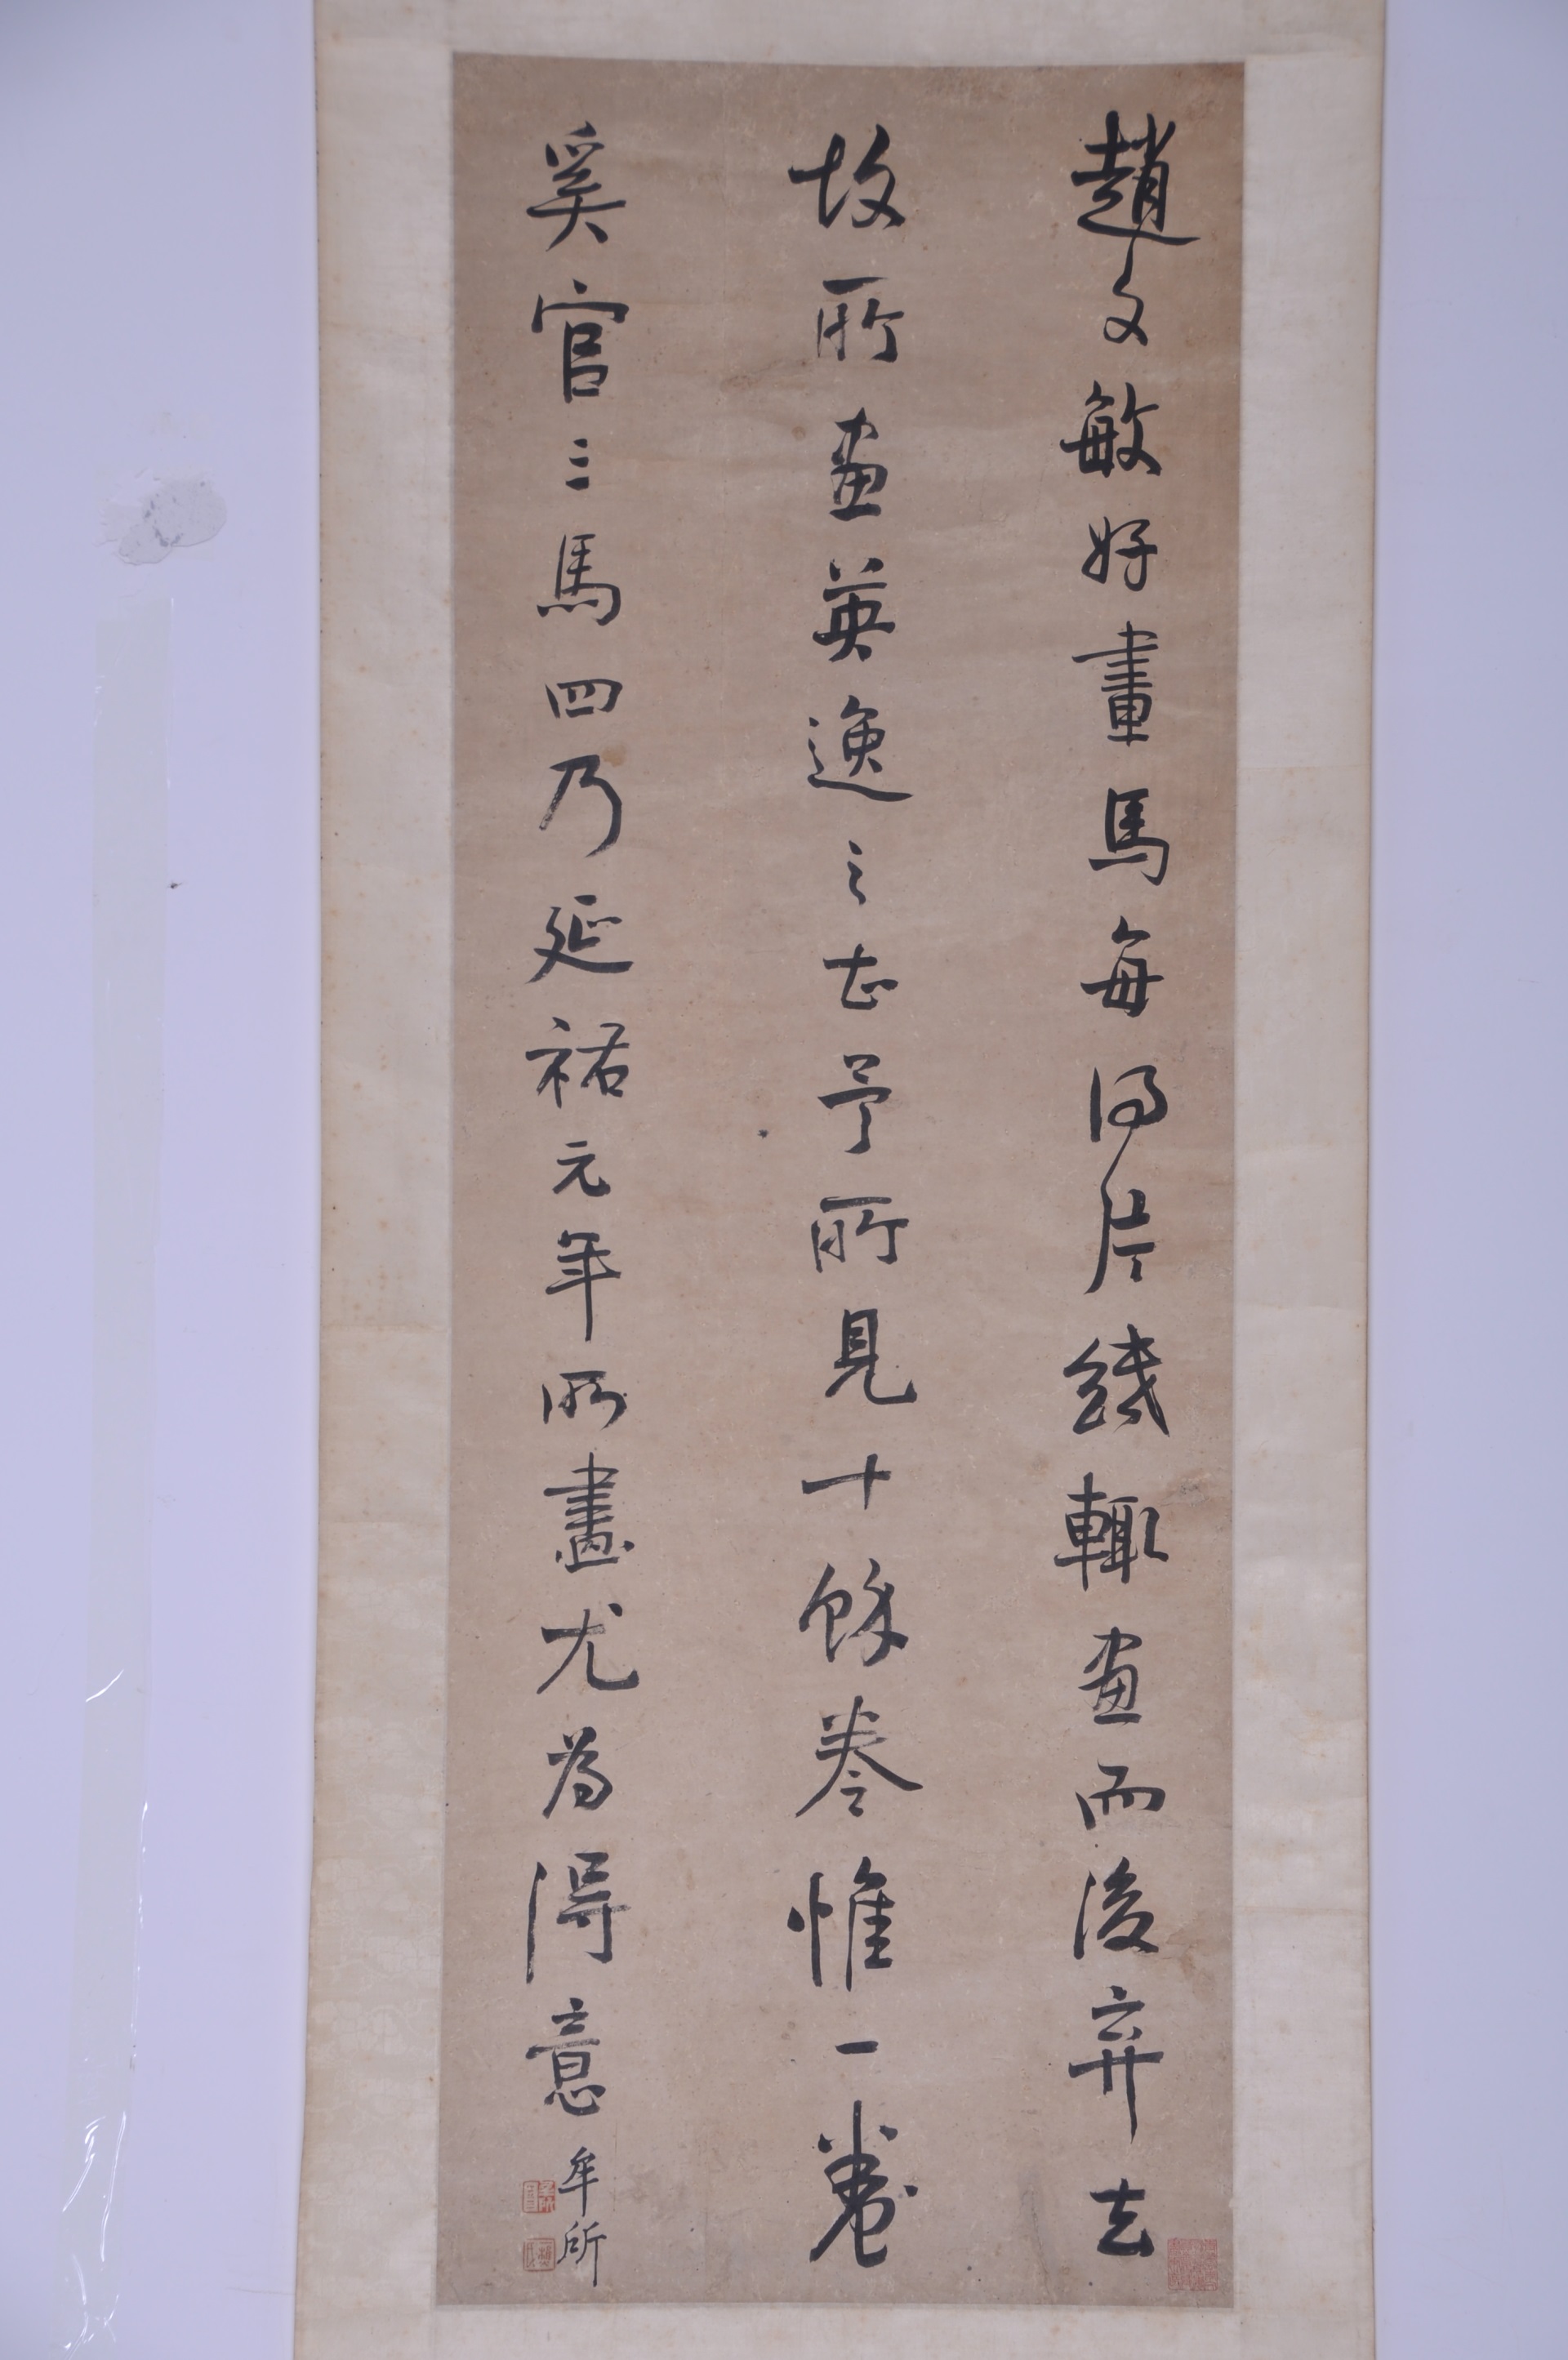 趙文敏好畫馬每得片紙輒畫而後弃去
故所畫英逸之甚予所見十餘卷惟一卷
奚官三馬四乃延祐元年所畫尤為得意
牟所